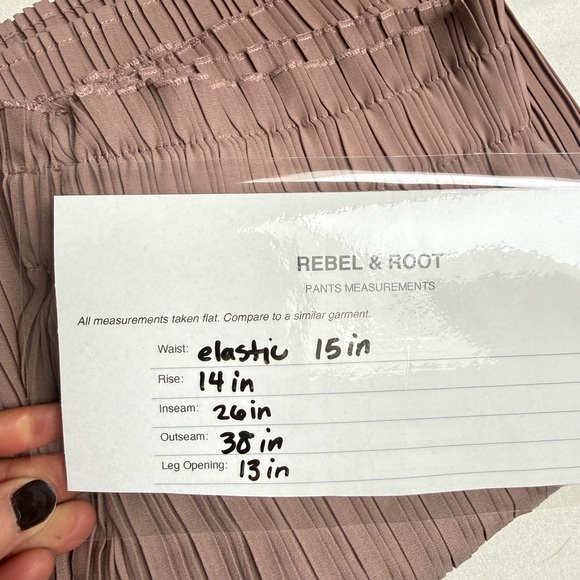 REBEL & ROOT
PANTS MEASUREMENTS
All measurements taken flat. Compare to a similar garment.
Waist: elastic 15 in
Rise: 14 in
Inseam: 26 in
Outseam: 38 in
Leg Opening: 13 in